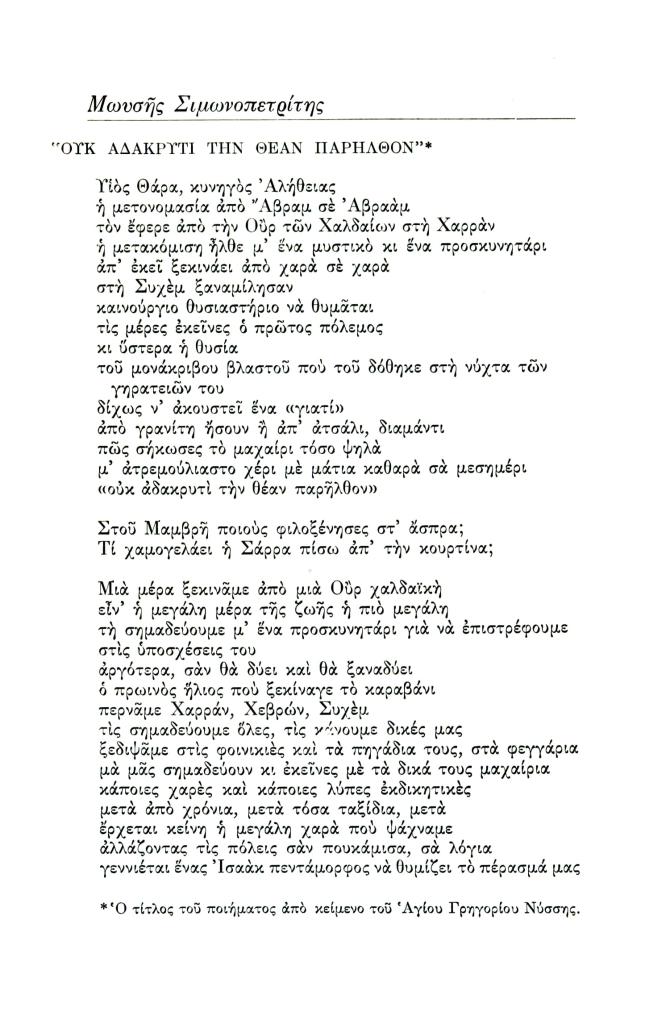 Μωυσῆς Σιμωνοπετρίτης
"ΟΥΚ ΑΔΑΚΡΥΤΙ ΤΗΝ ΘΕΑΝ ΠΑΡΗΛΘΟΝ"*
Υἱὸς Θάρα, κυνηγὸς Ἀλήθειας
ἡ μετονομασία ἀπὸ Ἄβραμ σὲ Ἀβραὰμ
τὸν ἔφερε ἀπὸ τὴν Οὒρ τῶν Χαλδαίων στὴ Χαρρὰν
ἡ μετακόμιση ἦλθε μ' ἕνα μυστικὸ κι ἕνα προσκυνητάρι
ἀπ' ἐκεῖ ξεκινάει ἀπὸ χαρὰ σὲ χαρὰ
στὴ Συχὲμ ξαναμίλησαν
καινούργιο θυσιαστήριο νὰ θυμᾶται
τὶς μέρες ἐκεῖνες ὁ πρῶτος πόλεμος
κι ὕστερα ἡ θυσία
τοῦ μονάκριβου βλαστοῦ ποὺ τοῦ δόθηκε στὴ νύχτα τῶν
γηρατειῶν του
δίχως ν' ἀκουστεῖ ἕνα «γιατί»
ἀπὸ γρανίτη ἤσουν ἢ ἀπ' ἀτσάλι, διαμάντι
πῶς σήκωσες τὸ μαχαίρι τόσο ψηλὰ
μ' ἀτρεμούλιαστο χέρι μὲ μάτια καθαρὰ σὰ μεσημέρι
«οὐκ ἀδακρυτὶ τὴν θέαν παρῆλθον»
Στοῦ Μαμβρῆ ποιοὺς φιλοξένησες στ' ἄσπρα;
Τί χαμογελάει ἡ Σάρρα πίσω ἀπ' τὴν κουρτίνα;
Μιὰ μέρα ξεκινᾶμε ἀπὸ μιὰ Οὒρ χαλδαϊκὴ
εἶν' ἡ μεγάλη μέρα τῆς ζωῆς ἡ πιὸ μεγάλη
τὴ σημαδεύουμε μ' ἕνα προσκυνητάρι γιὰ νὰ ἐπιστρέφουμε
στὶς ὑποσχέσεις του
ἀργότερα, σὰν θὰ δύει καὶ θὰ ξαναδύει
ὁ πρωινὸς ἥλιος ποὺ ξεκίναγε τὸ καραβάνι
περνᾶμε Χαρράν, Χεβρών, Συχὲμ
τὶς σημαδεύουμε ὅλες, τὶς κάνουμε δικές μας
ξεδιψᾶμε στὶς φοινικιὲς καὶ τὰ πηγάδια τους, στὰ φεγγάρια
μὰ μᾶς σημαδεύουν κι ἐκεῖνες μὲ τὰ δικά τους μαχαίρια
κάποιες χαρὲς καὶ κάποιες λύπες ἐκδικητικὲς
μετὰ ἀπὸ χρόνια, μετὰ τόσα ταξίδια, μετὰ
ἔρχεται κείνη ἡ μεγάλη χαρὰ ποὺ ψάχναμε
ἀλλάζοντας τὶς πόλεις σὰν πουκάμισα, σὰ λόγια
γεννιέται ἕνας Ἰσαὰκ πεντάμορφος νὰ θυμίζει τὸ πέρασμά μας
*Ὁ τίτλος τοῦ ποιήματος ἀπὸ κείμενο τοῦ Ἁγίου Γρηγορίου Νύσσης.